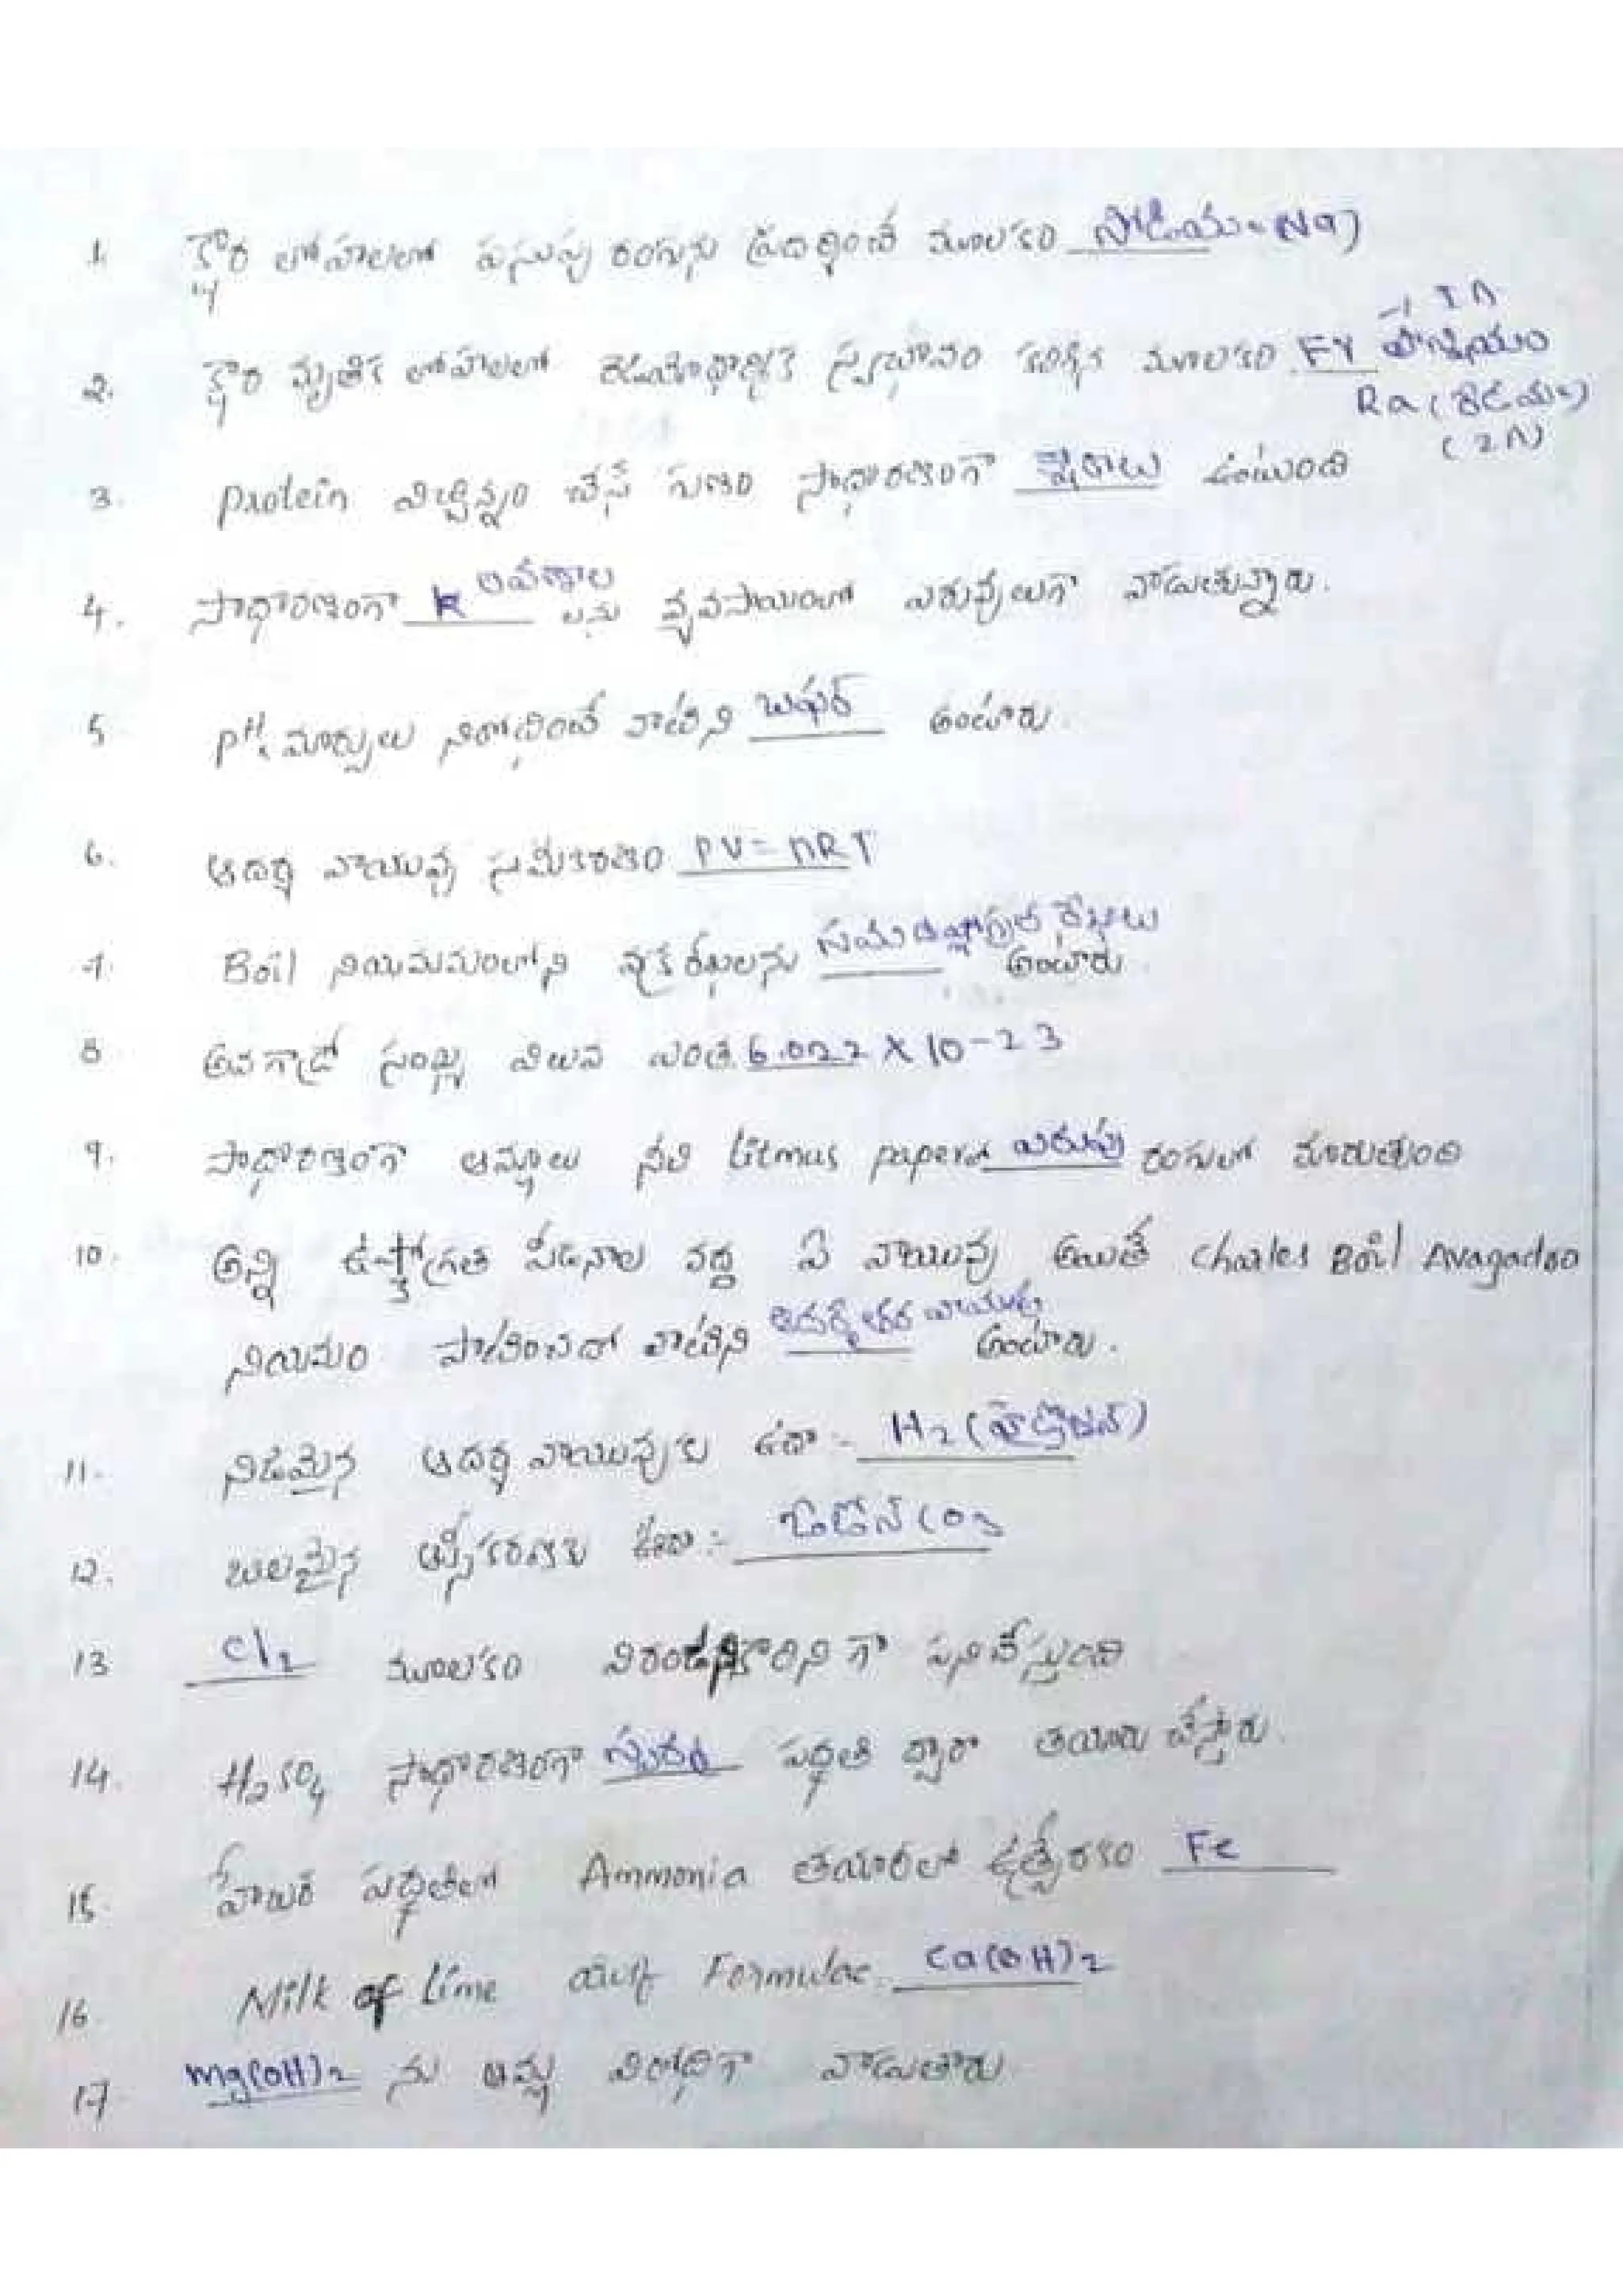 1. క్షార లోహాలలో పసుపు రంగును ప్రదర్శించే మూలకం సోడియం (Na)
→ I A
2. క్షార మృత్తిక లోహాలలో రేడియోధార్మికత స్వభావం కలిగిన మూలకం Fr ఫ్రాన్షియం
Ra (రేడియం)
(2A)
3. protein విచ్ఛిన్నం చేసే గుణం సాధారణంగా క్షారాలు ఉంటుంది
4. సాధారణంగా K లవణాల లను వ్యవసాయంలో ఎరువులుగా వాడుతున్నారు.
5 pH మార్పులు నిరోధించే వాటిని బఫర్ అంటారు.
6. ఆదర్శ వాయువు సమీకరణం PV = nRT
7. Boil నియమమంలోని వక్రరేఖలను సమఉష్ణోగ్రత రేఖలు అంటారు.
8 అవగాడ్రో సంఖ్య విలువ ఎంత 6.022 X 10-23
9. సాధారణంగా ఆమ్లాలు నీలి litmus paperను ఎరుపు రంగులో మారుతుంది
10. అన్ని ఉష్ణోగ్రత పీడనాల వద్ద ఏ వాయువు అయితే Charles Boil Avagadoo
నియమం పాటించదో వాటిని ఆదర్శేతర వాయువు అంటారు.
11. నిజమైన ఆదర్శ వాయువుకు ఉదా :- H2 (హైడ్రోజన్)
12. బలమైన ఆక్సీకరణికి ఉదా :- ఓజోన్ (O3
13 Cl2 మూలకం విరంజనకారినిగా పనిచేస్తుంది
14. H2SO4 సాధారణంగా స్పర్శ పద్ధతి ద్వారా తయారు చేస్తారు.
15. హేబర్ పద్ధతిలో Ammonia తయారీలో ఉత్ప్రేరకం Fe
16 Milk of lime యొక్క Formulae Ca(OH)2
17 Mg(OH)2 ను ఆమ్ల విరోధిగా వాడుతారు